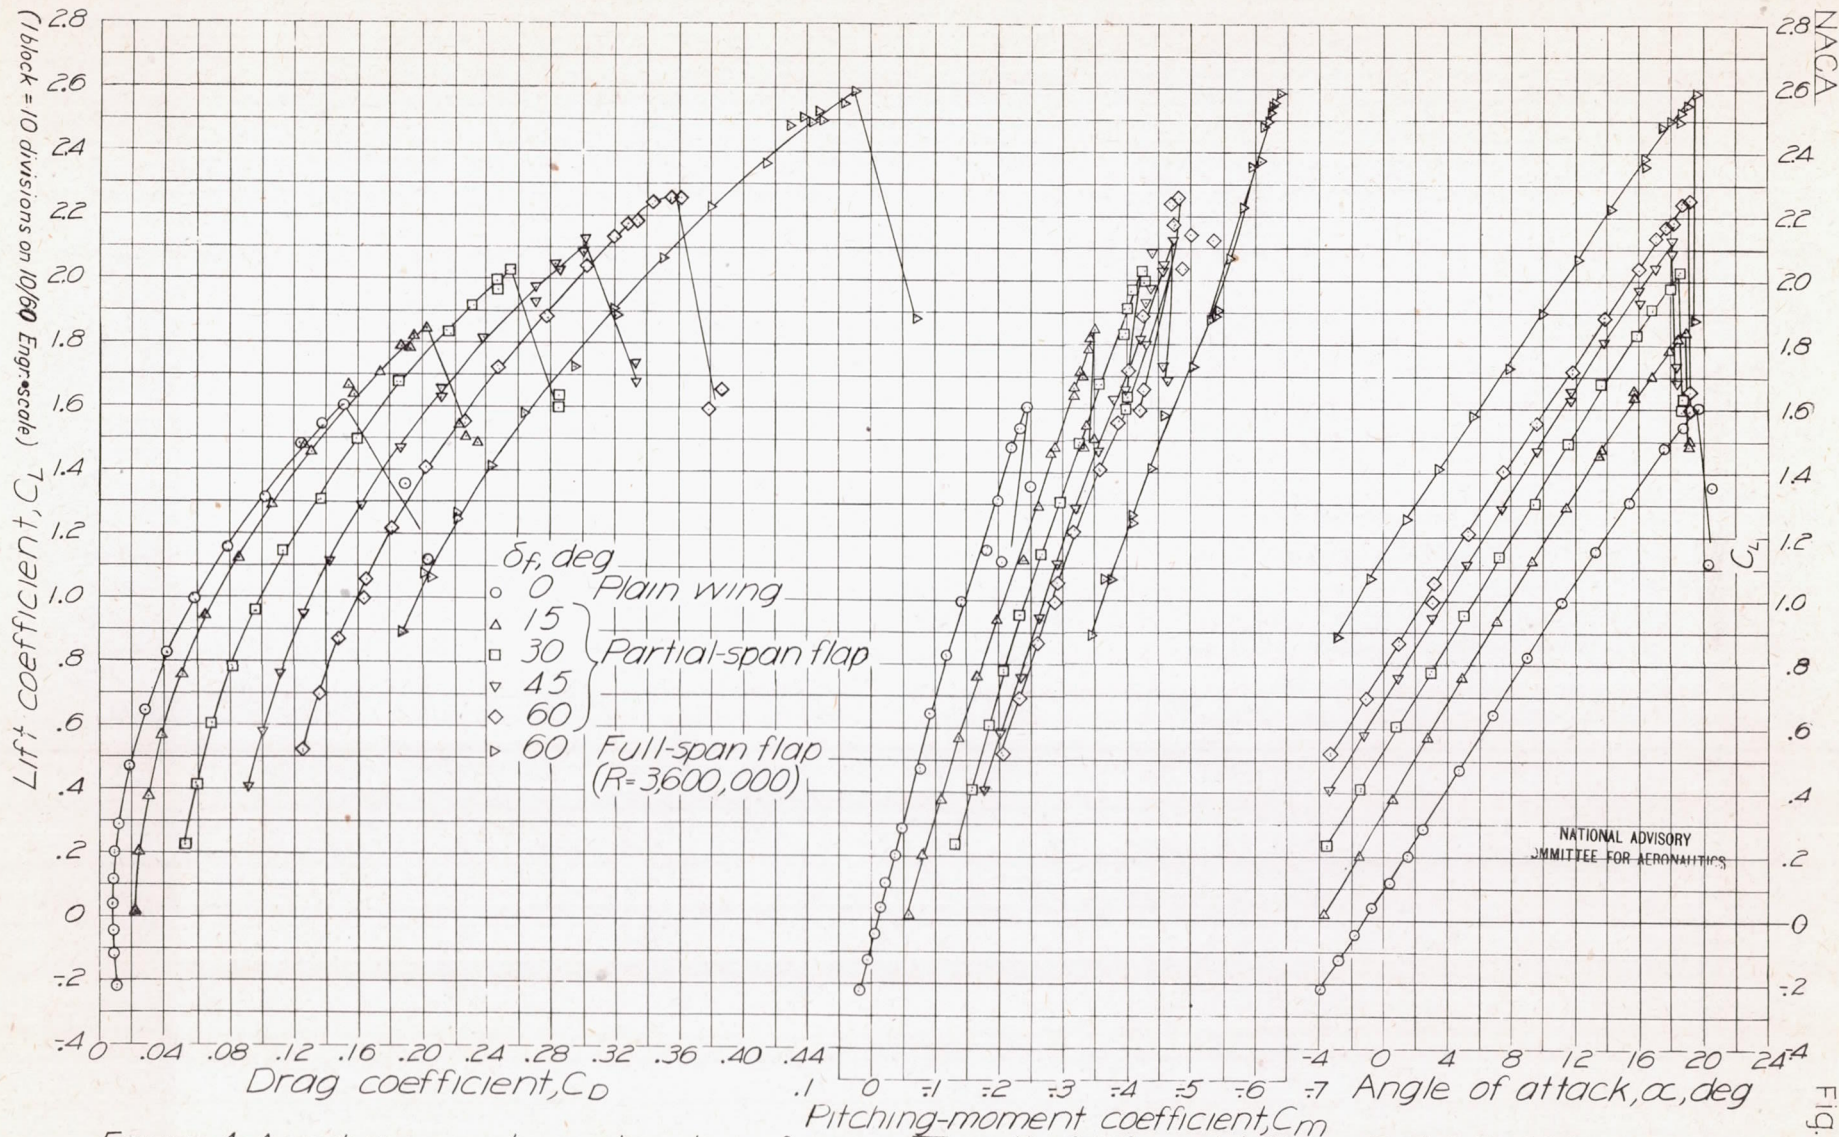 NACA
(1 block = 10 divisions on 10/60 Engr. scale)
Lift coefficient, C_L
2.8
2.6
2.4
2.2
2.0
1.8
1.6
1.4
1.2
1.0
.8
.6
.4
.2
0
-.2
-.4
0 .04 .08 .12 .16 .20 .24 .28 .32 .36 .40 .44
Drag coefficient, C_D
δf, deg
0 Plain wing
15
30 Partial-span flap
45
60
60 Full-span flap
(R=3,600,000)
.1 0 -.1 -.2 -.3 -.4 -.5 -.6 -.7
Pitching-moment coefficient, Cm
-4 0 4 8 12 16 20 24
Angle of attack, α, deg
2.8
2.6
2.4
2.2
2.0
1.8
1.6
1.4
1.2
1.0
.8
.6
.4
.2
0
-.2
-.4
C_L
NATIONAL ADVISORY
OMMITTEE FOR AERONAUTICS
Fig.